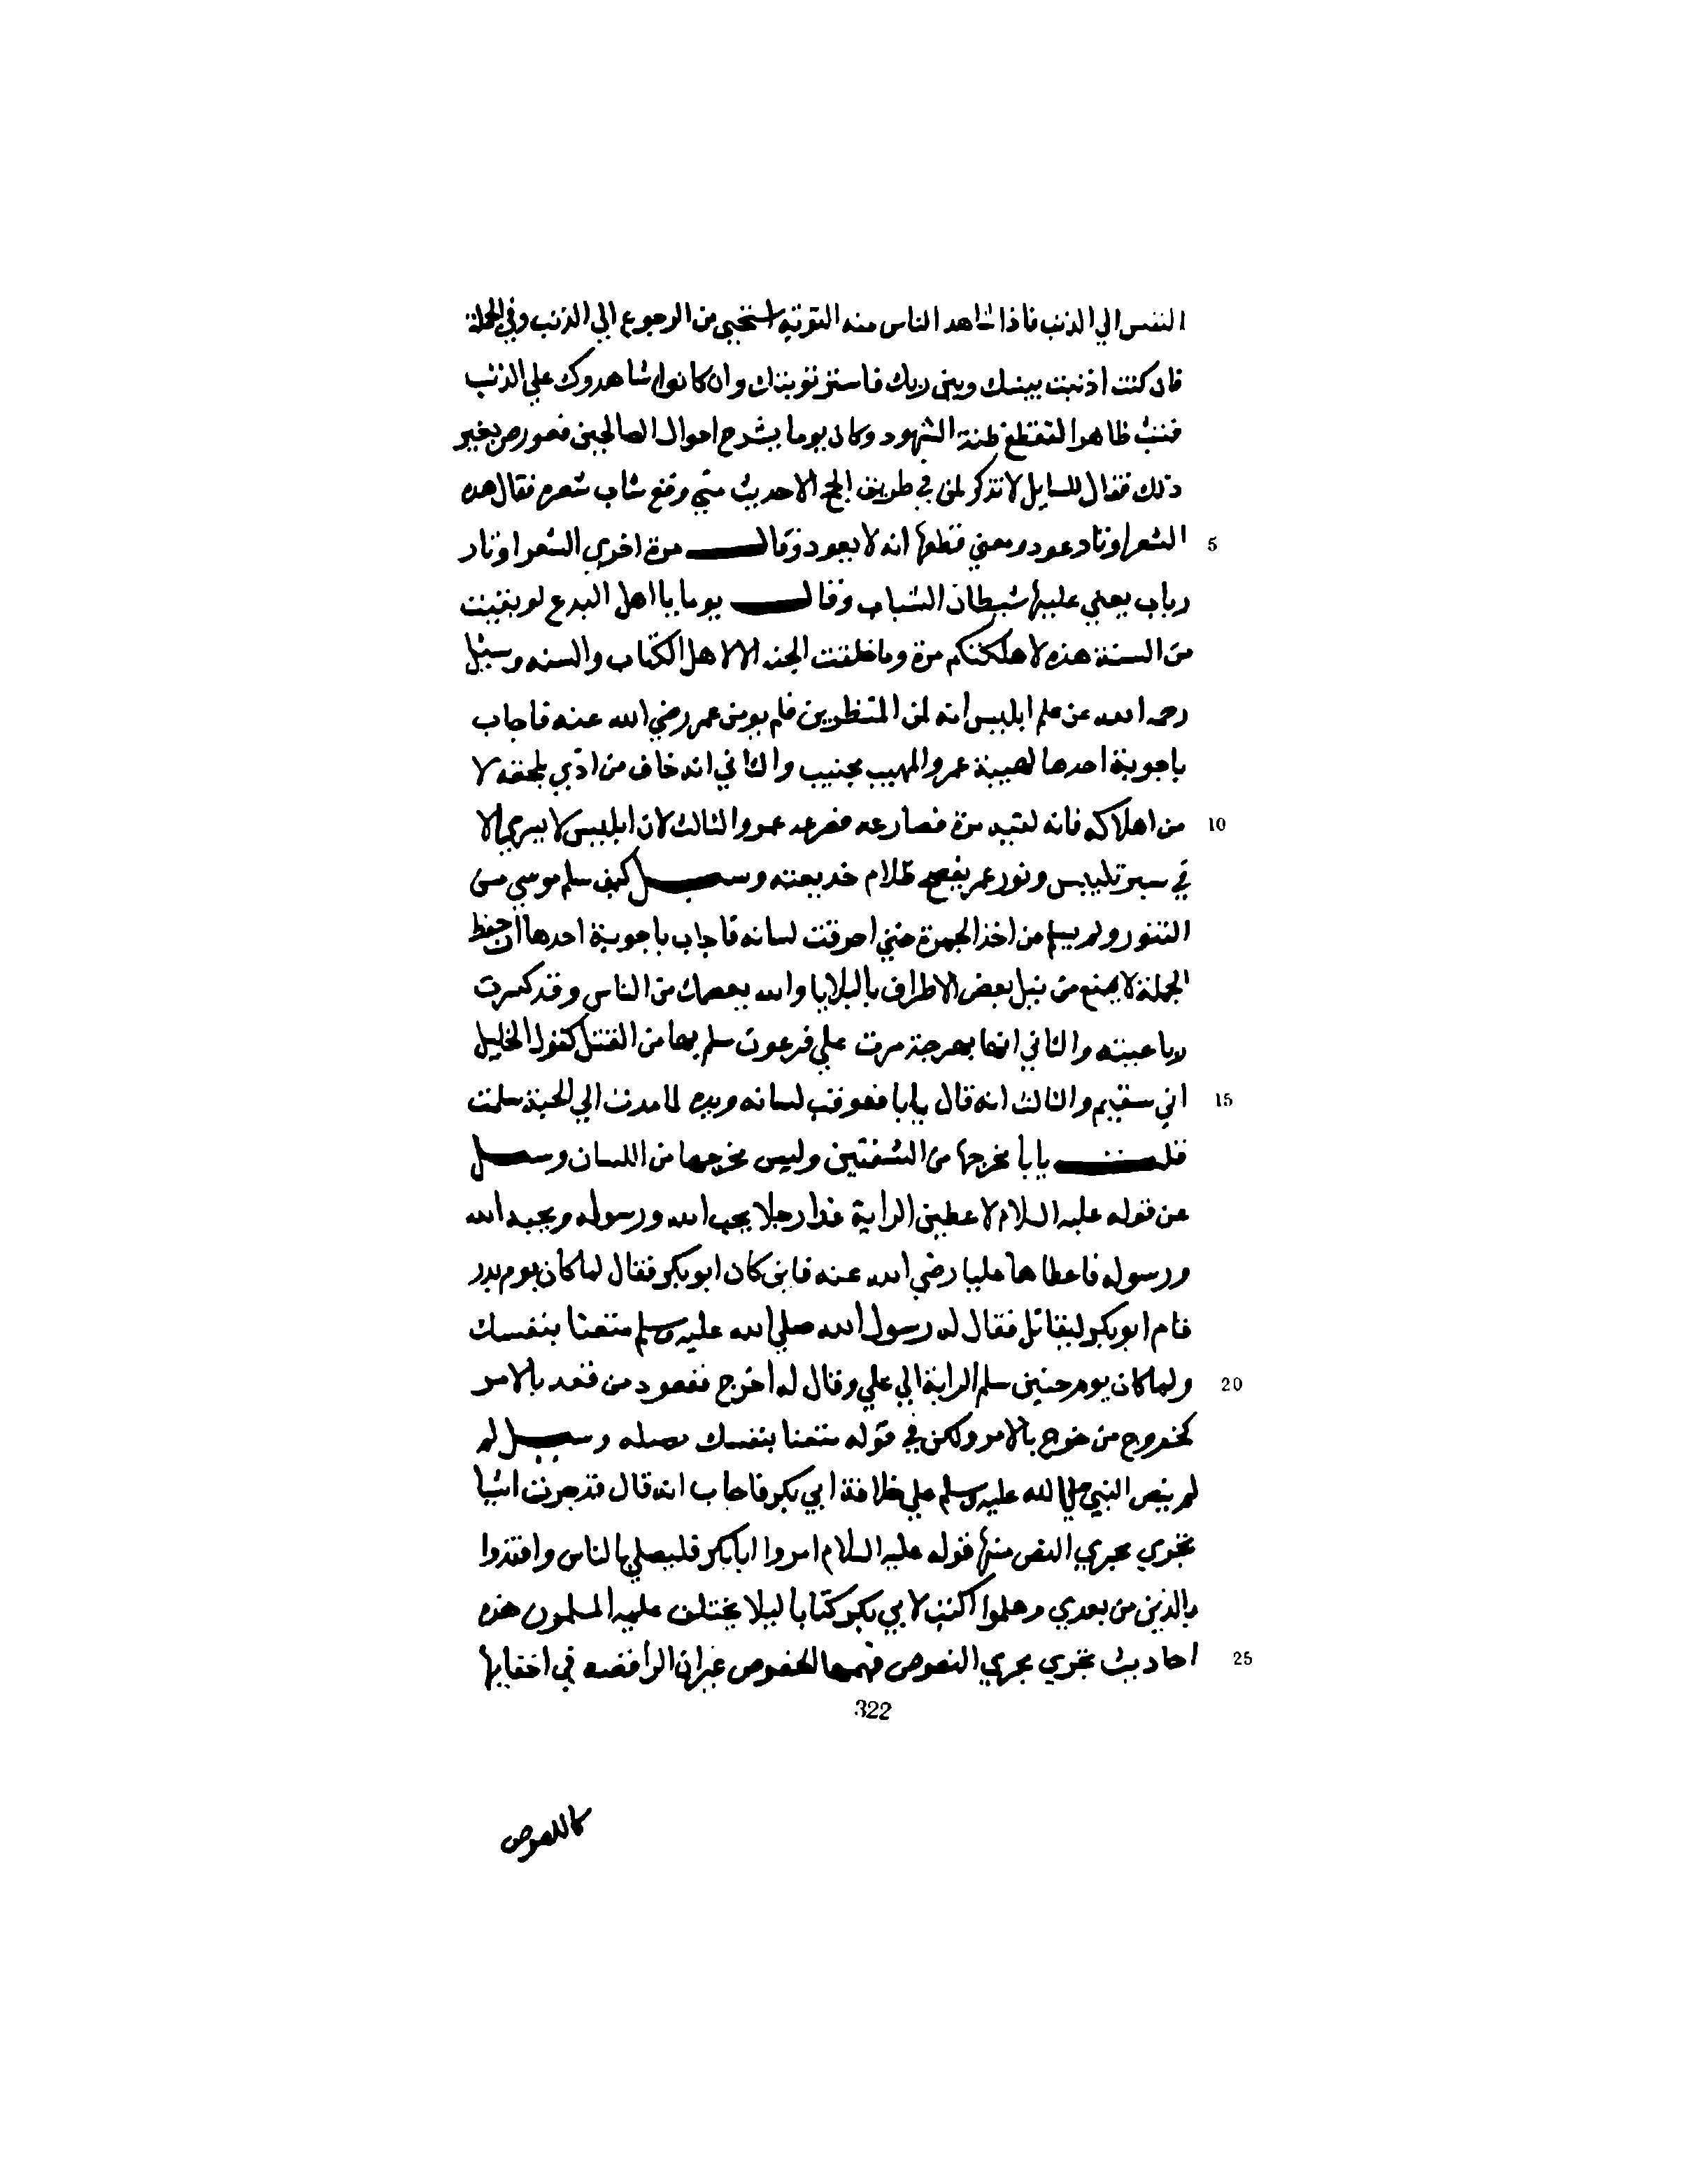 النفس الي الذنب فاذا شاهد الناس منه التوبة استحيي من الرجوع الي الذنب وفي الجملة
فان كنت اذنبت بينك وبين ربك فاستر توبتك وان كانوا شاهدوك علي الذنب
فتب ظاهرا لتقطع ظنة الشهود وكان يوما يشرح احوال الصالحين فعورض بغير
ذلك فقال للسايل لا تذكر لمن في طريق الحج الا حديث مني وقع شاب شعره فقال هده
5 الشعر اوتاد عود ومعني قطعها انه لا يعود وقال مرة اخري الشعر اوتار
رباب يعني عليها شيطان الشباب وقال يوما يا اهل البدع لو بقيت
من السنة هذه لاهلكتكم مرة وما خلقت الجنه الا لاهل الكتاب والسنه وسئل
رحمه الله عن علم ابليس انه لمن المنظرين فلم يومن عمر رضي الله عنه فاجاب
باجوبة احدها لهيبة عمر والمهيب مجنب والثاني انه خاف من اذي يلحقه لا
10 من اهلاكه فانه لقيه مرة فصارعه فصرعه عمر والثالث لان ابليس لا يسري الا
في ستر تلبيس ونور عمر يفضح ظلام خديعته وسئل كيف سلم موسي من
التنور ولم يسلم من اخذ الجمرة حتي احرقت لسانه فاجاب باجوبة احدها ان حفظ
الجملة لا يمنع من نيل بعض الاطراف بالبلايا والله يعصمك من الناس وقد كسرت
رباعيته والثاني انها بهرجة مرت علي فرعون سلم بها من القتل كقول الخليل
15 اني سقيم والثالث انه قال يا بابا فعوقب لسانه ويده لما مدت الي اللحية سلمت
قلت يا بابا مخرجها من الشفتين وليس مخرجها من اللسان وسئل
عن قوله عليه السلام لاعطين الراية غدا رجلا يحب الله ورسوله ويحبه الله
ورسوله فاعطاها عليا رضي الله عنه فاين كان ابو بكر فقال لما كان يوم بدر
قام ابو بكر ليقاتل فقال له رسول الله صلي الله عليه وسلم متعنا بنفسك
20 ولما كان يوم حنين سلم الراية الي علي وقال له اخرج فقعود من قعد بالامر
كخروج من خرج بالامر ولكن في قوله متعنا بنفسك فضيله وسئل لم
لم ينص النبي صلي الله عليه وسلم علي خلافة ابي بكر فاجاب انه قال قد جرت اشيا
تجري مجري النص منها قوله عليه السلام امروا ابا بكر فليصلي بالناس واقتدوا
بالذين من بعدي وهلموا اكتب لابي بكر كتابا ليلا يختلف عليه المسلمون هذه
25 احاديث تجري مجري النصوص فهمها الخصوص غير ان الرافضه في اخفايها
322
كاللصوص